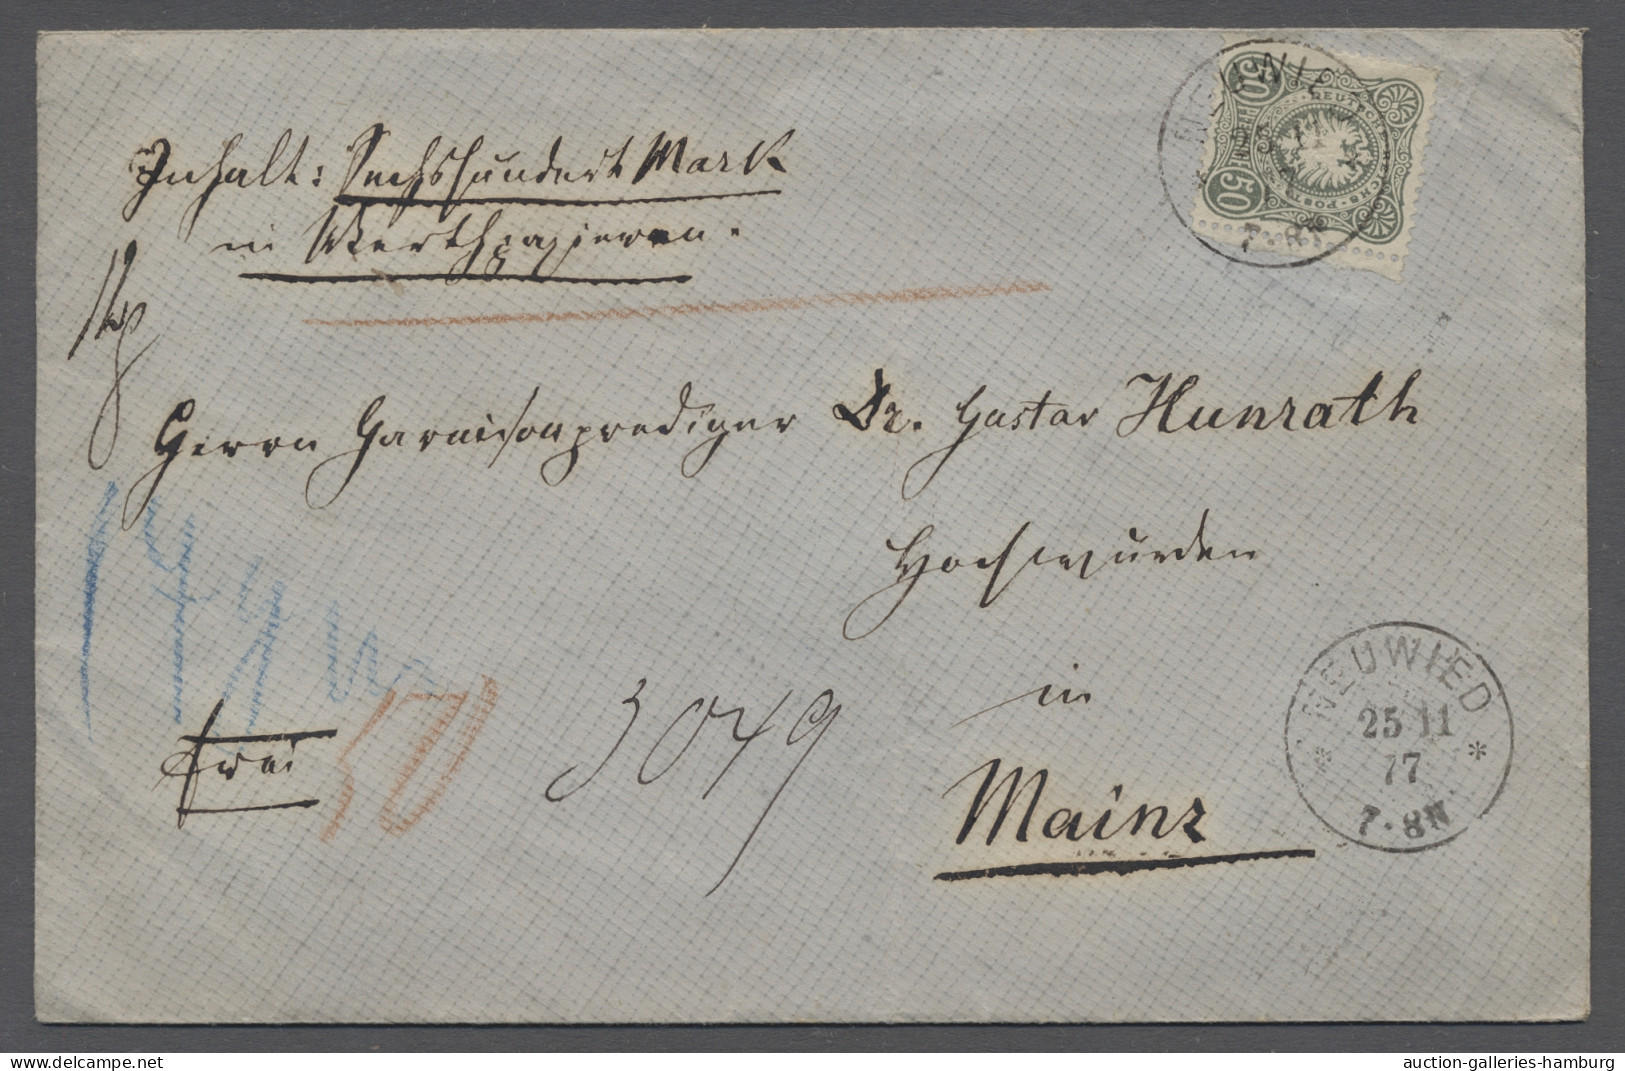 Inhalt: Sechshundert Mark
in Werthpapieren.
NEUWIED
25 11
7-8N
50
50
DEUTSCHE REICHS-POST
Herrn Garnisonprediger Dr. Gustav Hunrath
Hochwürden
in
Mainz
frei
50
3049
NEUWIED
25 11
77
7-8N
auction-galleries-hamburg